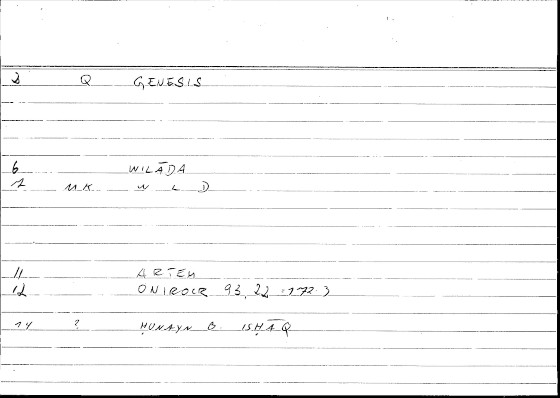 3 Q GENESIS
6 WILĀDA
7 MK W L D
11 ARTEM
12 ONIROCR 93, 22 = 172 3
14 ? ḤUNAYN B. ISḤĀQ